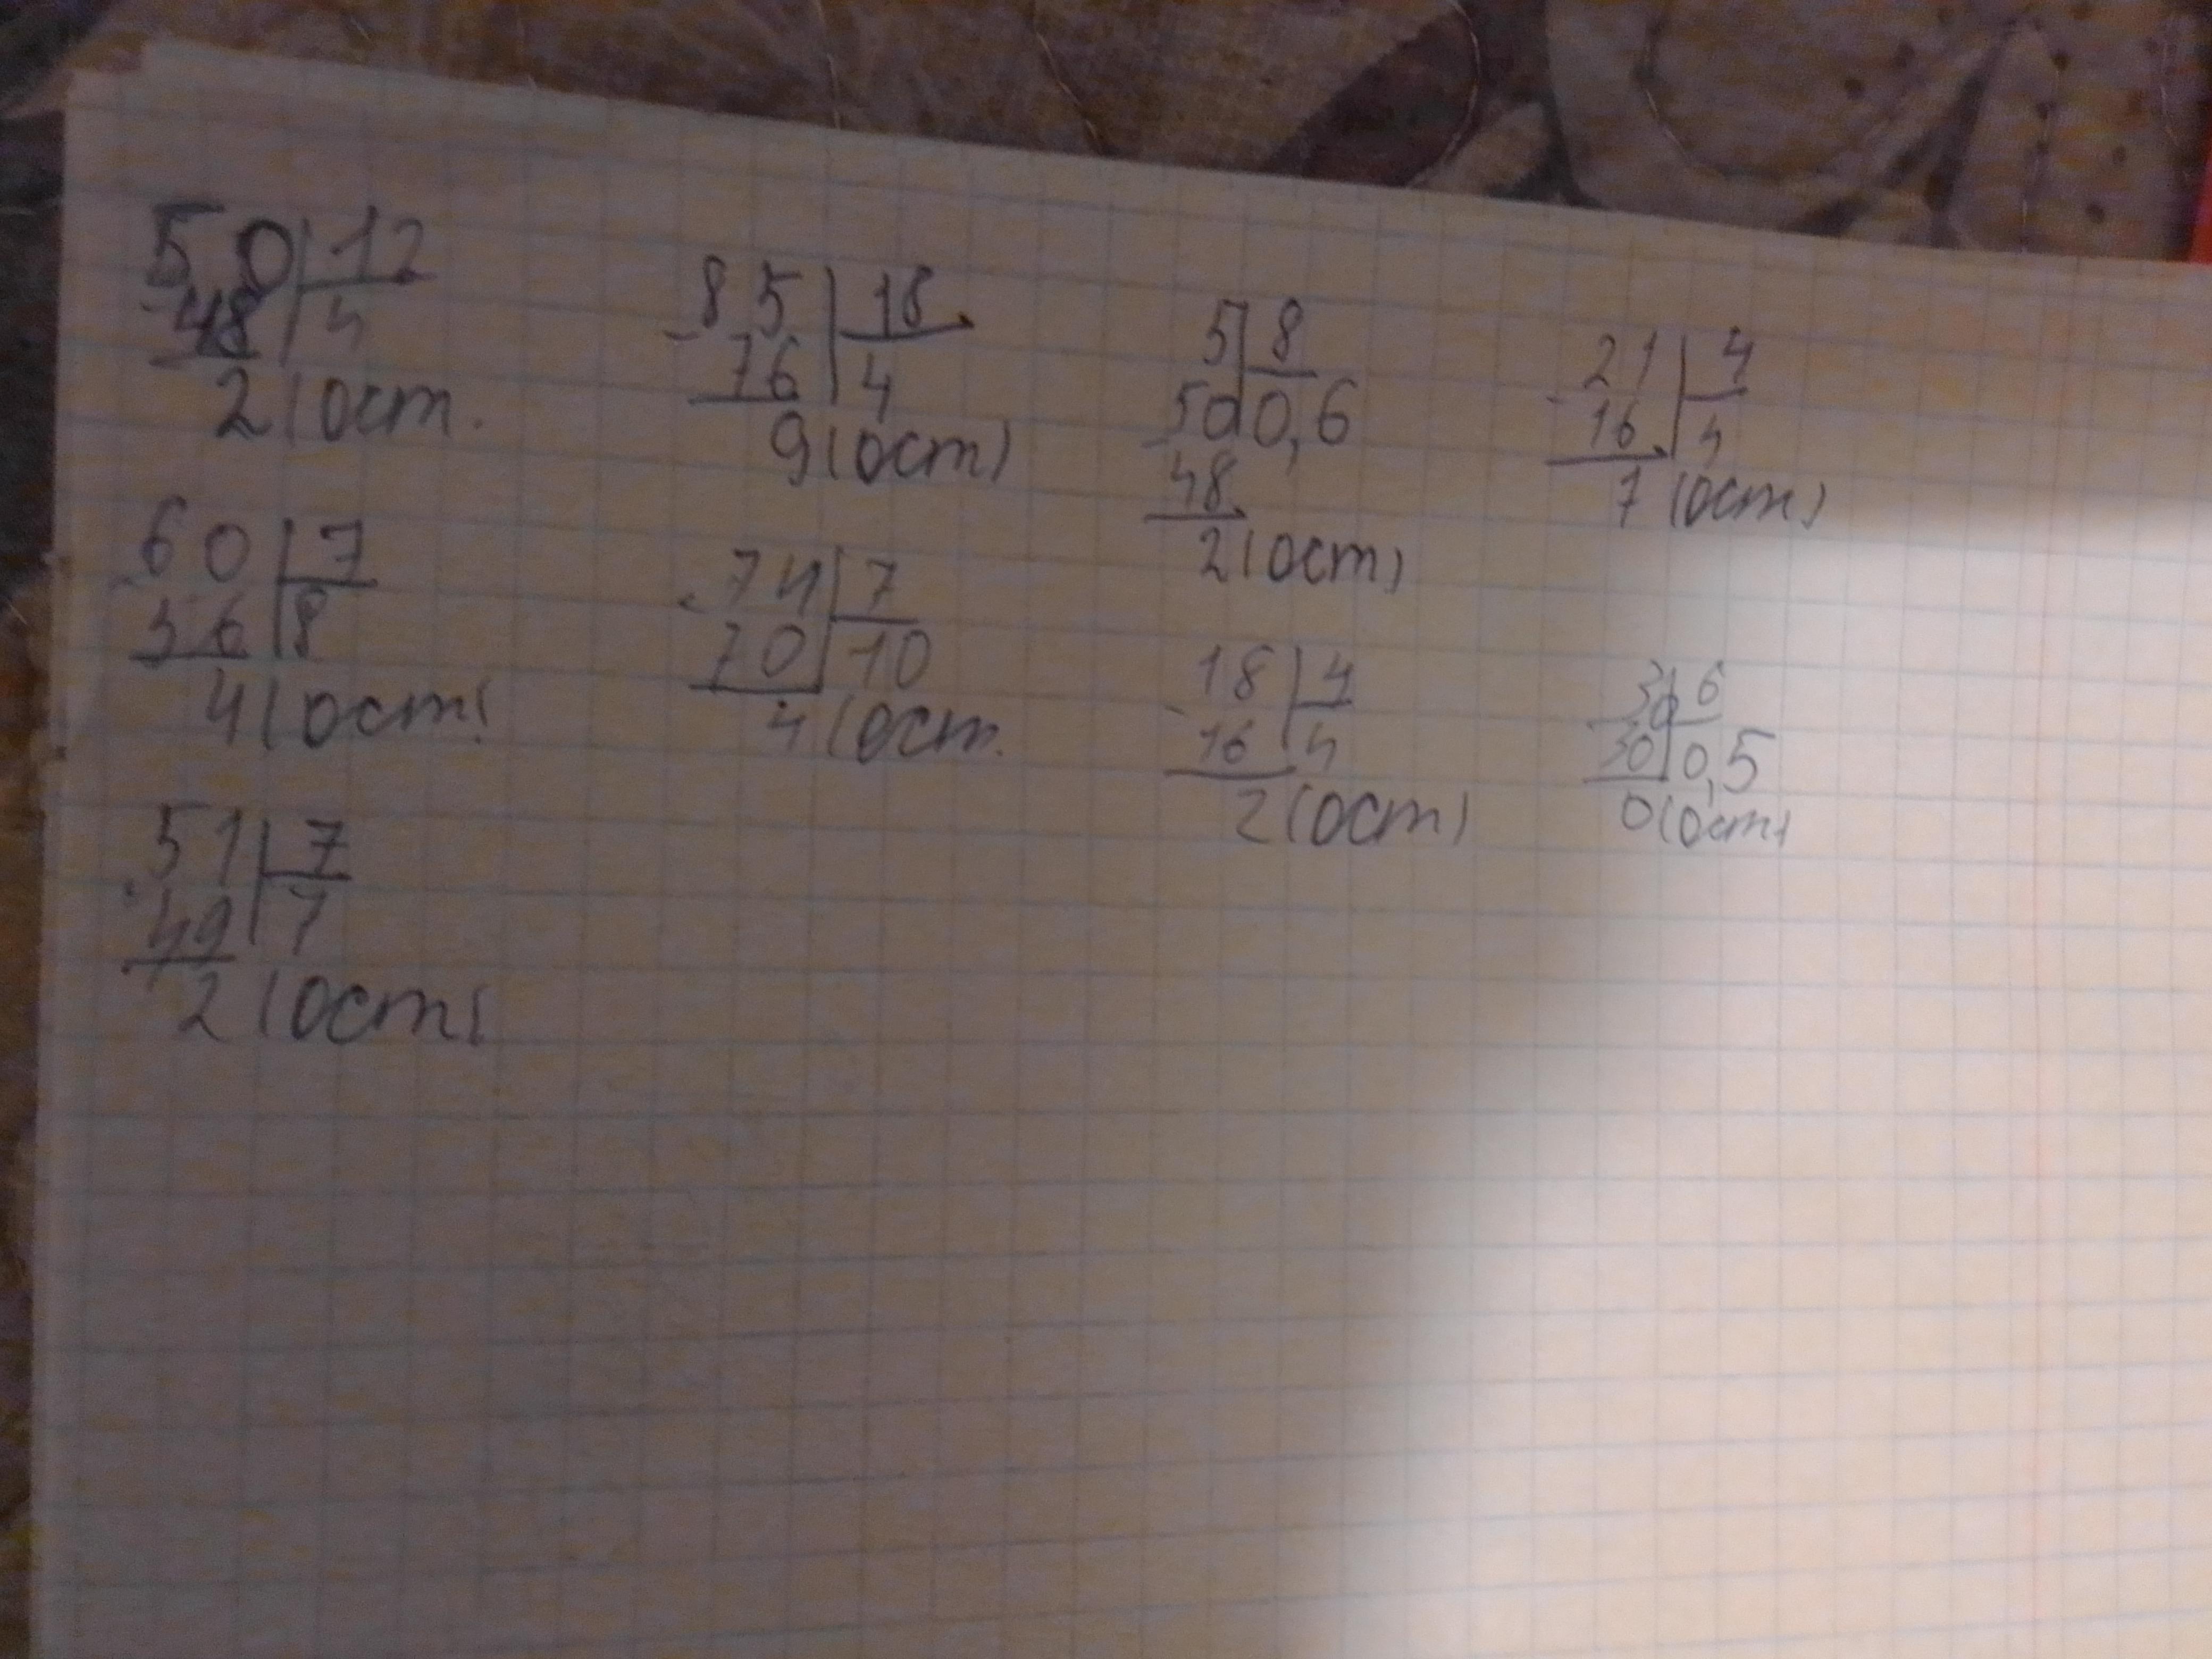 50 12
-48 4
2(ост.
85 18
-76 4
9(ост)
5 8
50 0,6
-48
2(ост)
21 4
-16 4
7(ост)
60 7
-56 8
4(ост)
74 7
-70 10
4(ост.
18 4
-16 4
2(ост)
30 6
-30 0,5
0(ост)
51 7
-49 7
2(ост)